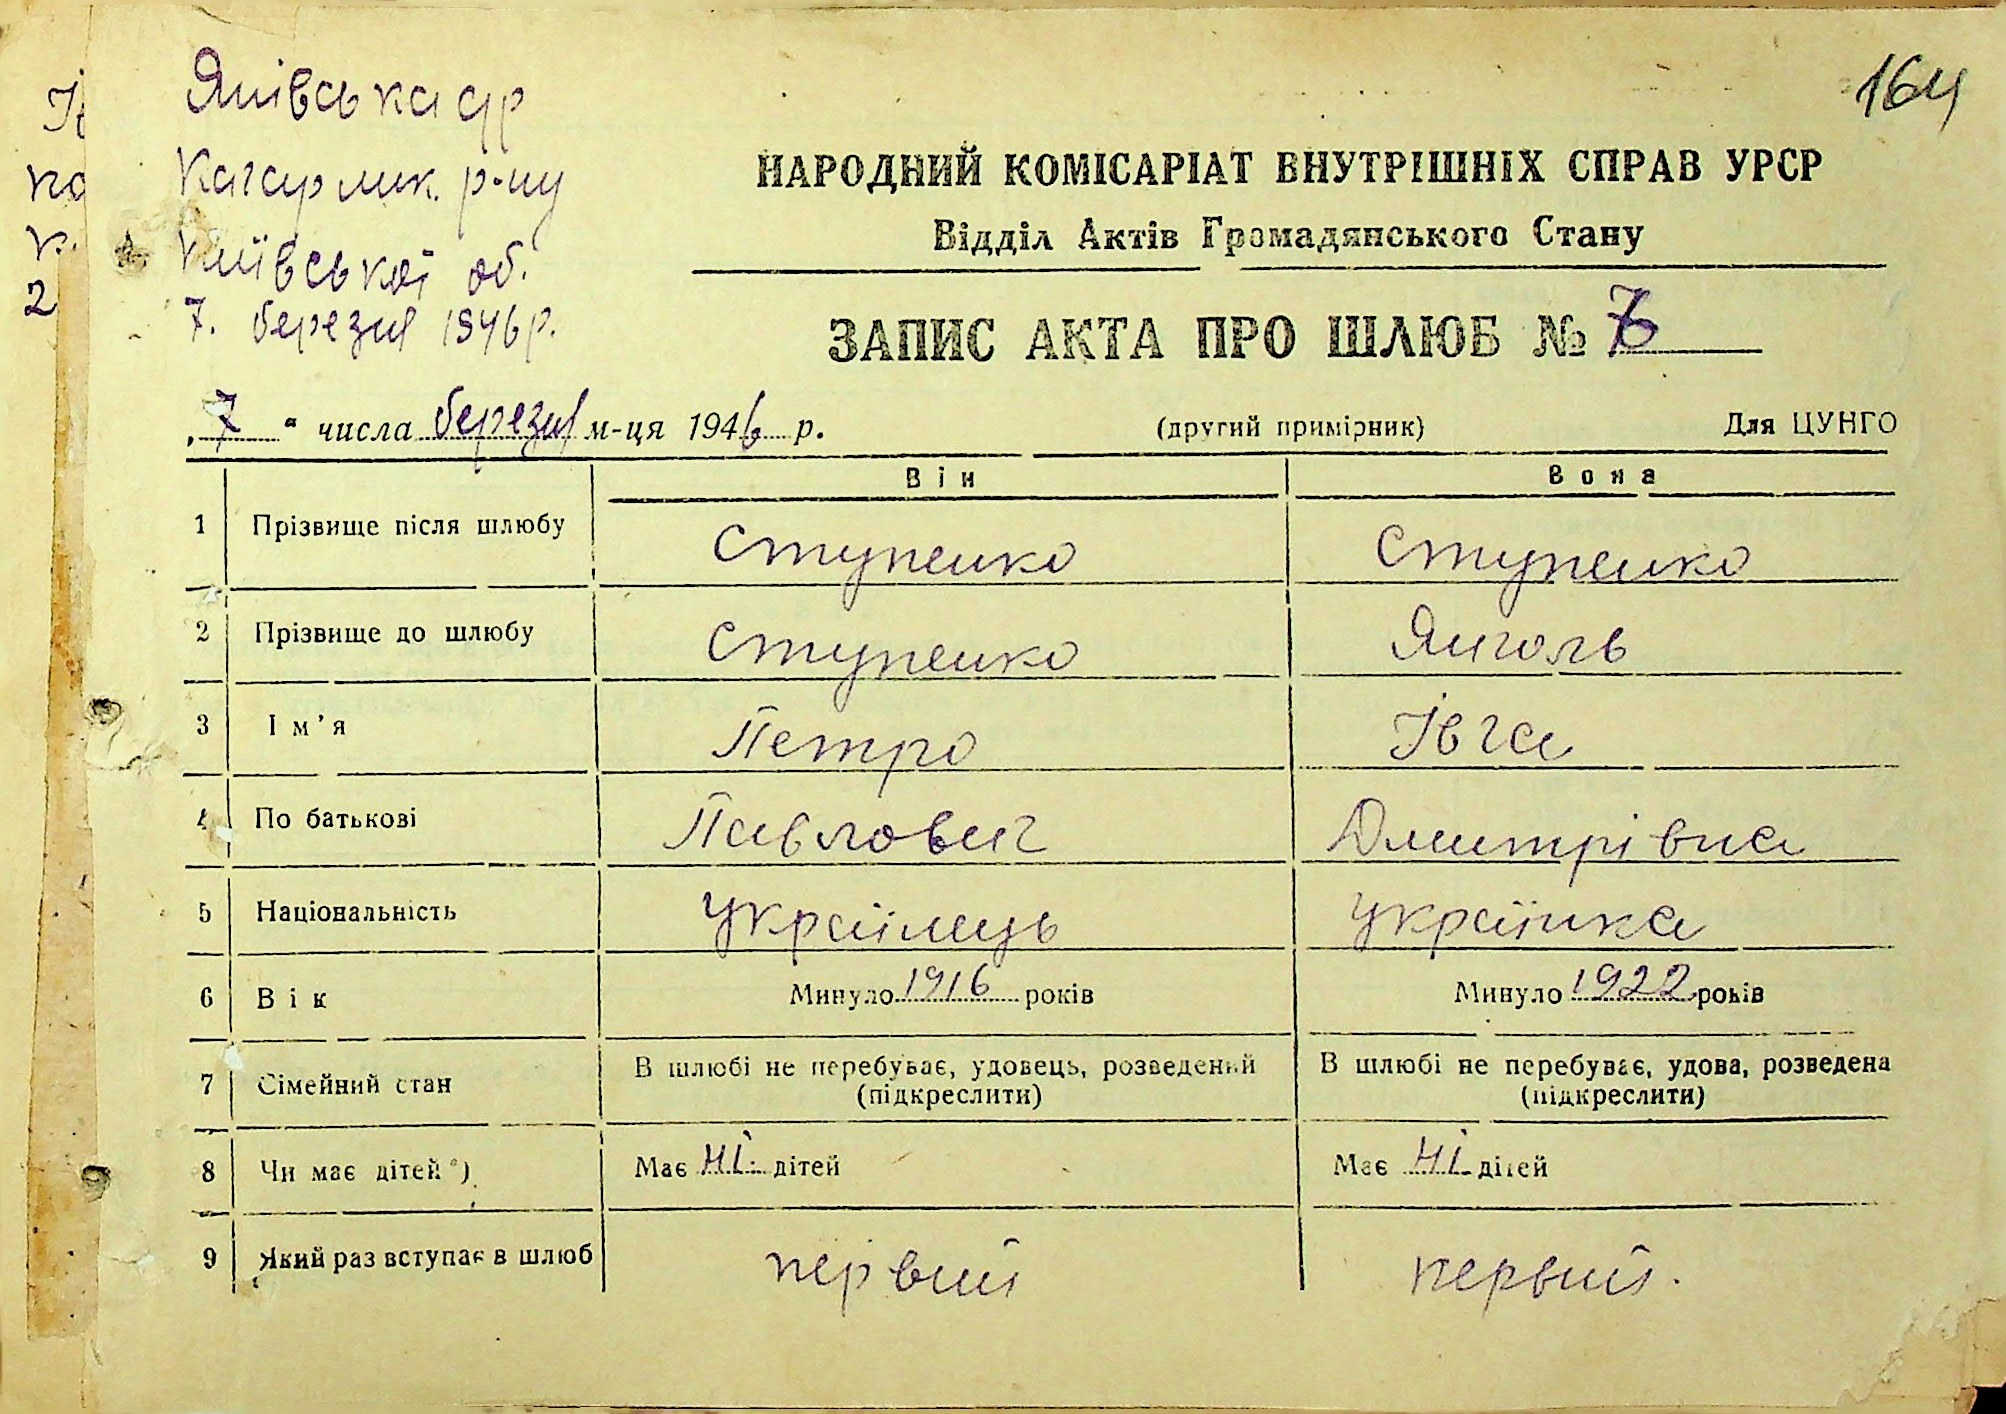 164
Янівська с/р
Кагарлик. р-ну
Київської об.
7. березня 1946 р.
НАРОДНИЙ КОМІСАРІАТ ВНУТРІШНІХ СПРАВ УРСР
Відділ Актів Громадянського Стану
ЗАПИС АКТА ПРО ШЛЮБ №
„7“ числа березня м-ця 1946 р. (другий примірник) Для ЦУНГО
Він Вона
1 Прізвище після шлюбу Ступенко Ступенко
2 Прізвище до шлюбу Ступенко Янголь
3 Ім’я Петро Івга
4 По батькові Павлович Дмитрівна
5 Національність Українець Українка
6 Вік Минуло 1916 років Минуло 1922 років
7 Сімейний стан В шлюбі не перебуває, удовець, розведений (підкреслити) В шлюбі не перебуває, удова, розведена (підкреслити)
8 Чи має дітей *) Має ні. дітей Має ні дітей
9 Який раз вступає в шлюб первий первий.